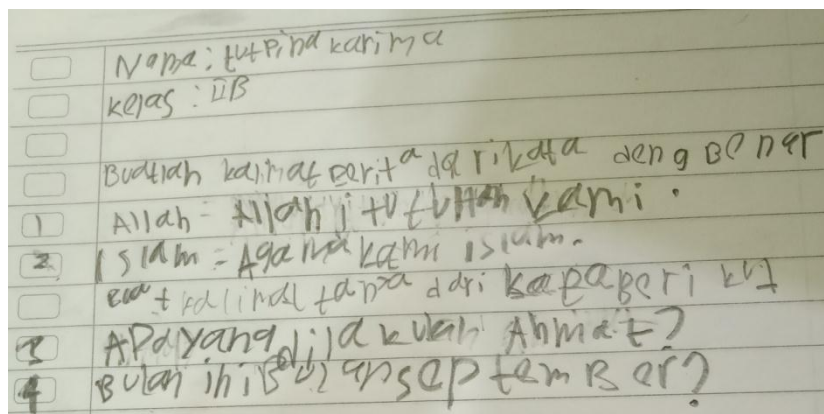 Nama : tutpina karima
Kelas : IIB
Buatlah kalimat berita dari kata deng Benar
1 Allah = Allah itu tuhan kami.
2 Islam = Agama kami islam.
buat kalimat tanya dari kata Beri kut
3 APa yang dilakukan Ahmat?
4 Bulan ini Bulan september?